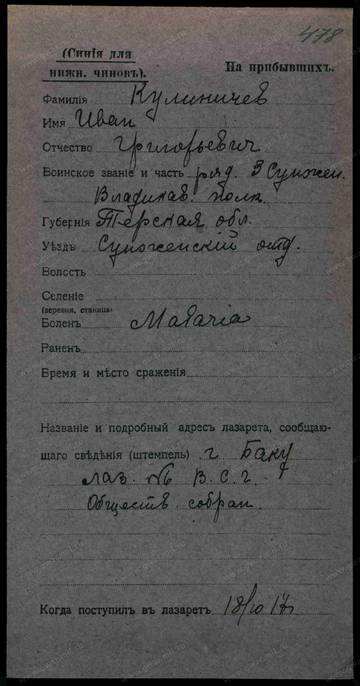 478
(Синія для
нижн. чиновъ).
На прибывшихъ.
Фамилія Кулиничев
Имя Иван
Отчество Григорьевич
Воинское званіе и часть ряд. 3 Сунжен.
Владикав. полк
Губернія Терская обл.
Уѣздъ Сунженскій отд.
Волость
Селеніе
(деревня, станица)
Боленъ Malaria
Раненъ
Время и мѣсто сраженія
Названіе и подробный адресъ лазарета, сообщаю-
щаго свѣдѣнія (штемпель) г. Баку
лаз. №6 В.С.Г.
Обществ собран.
Когда поступилъ въ лазаретъ 18/10 17